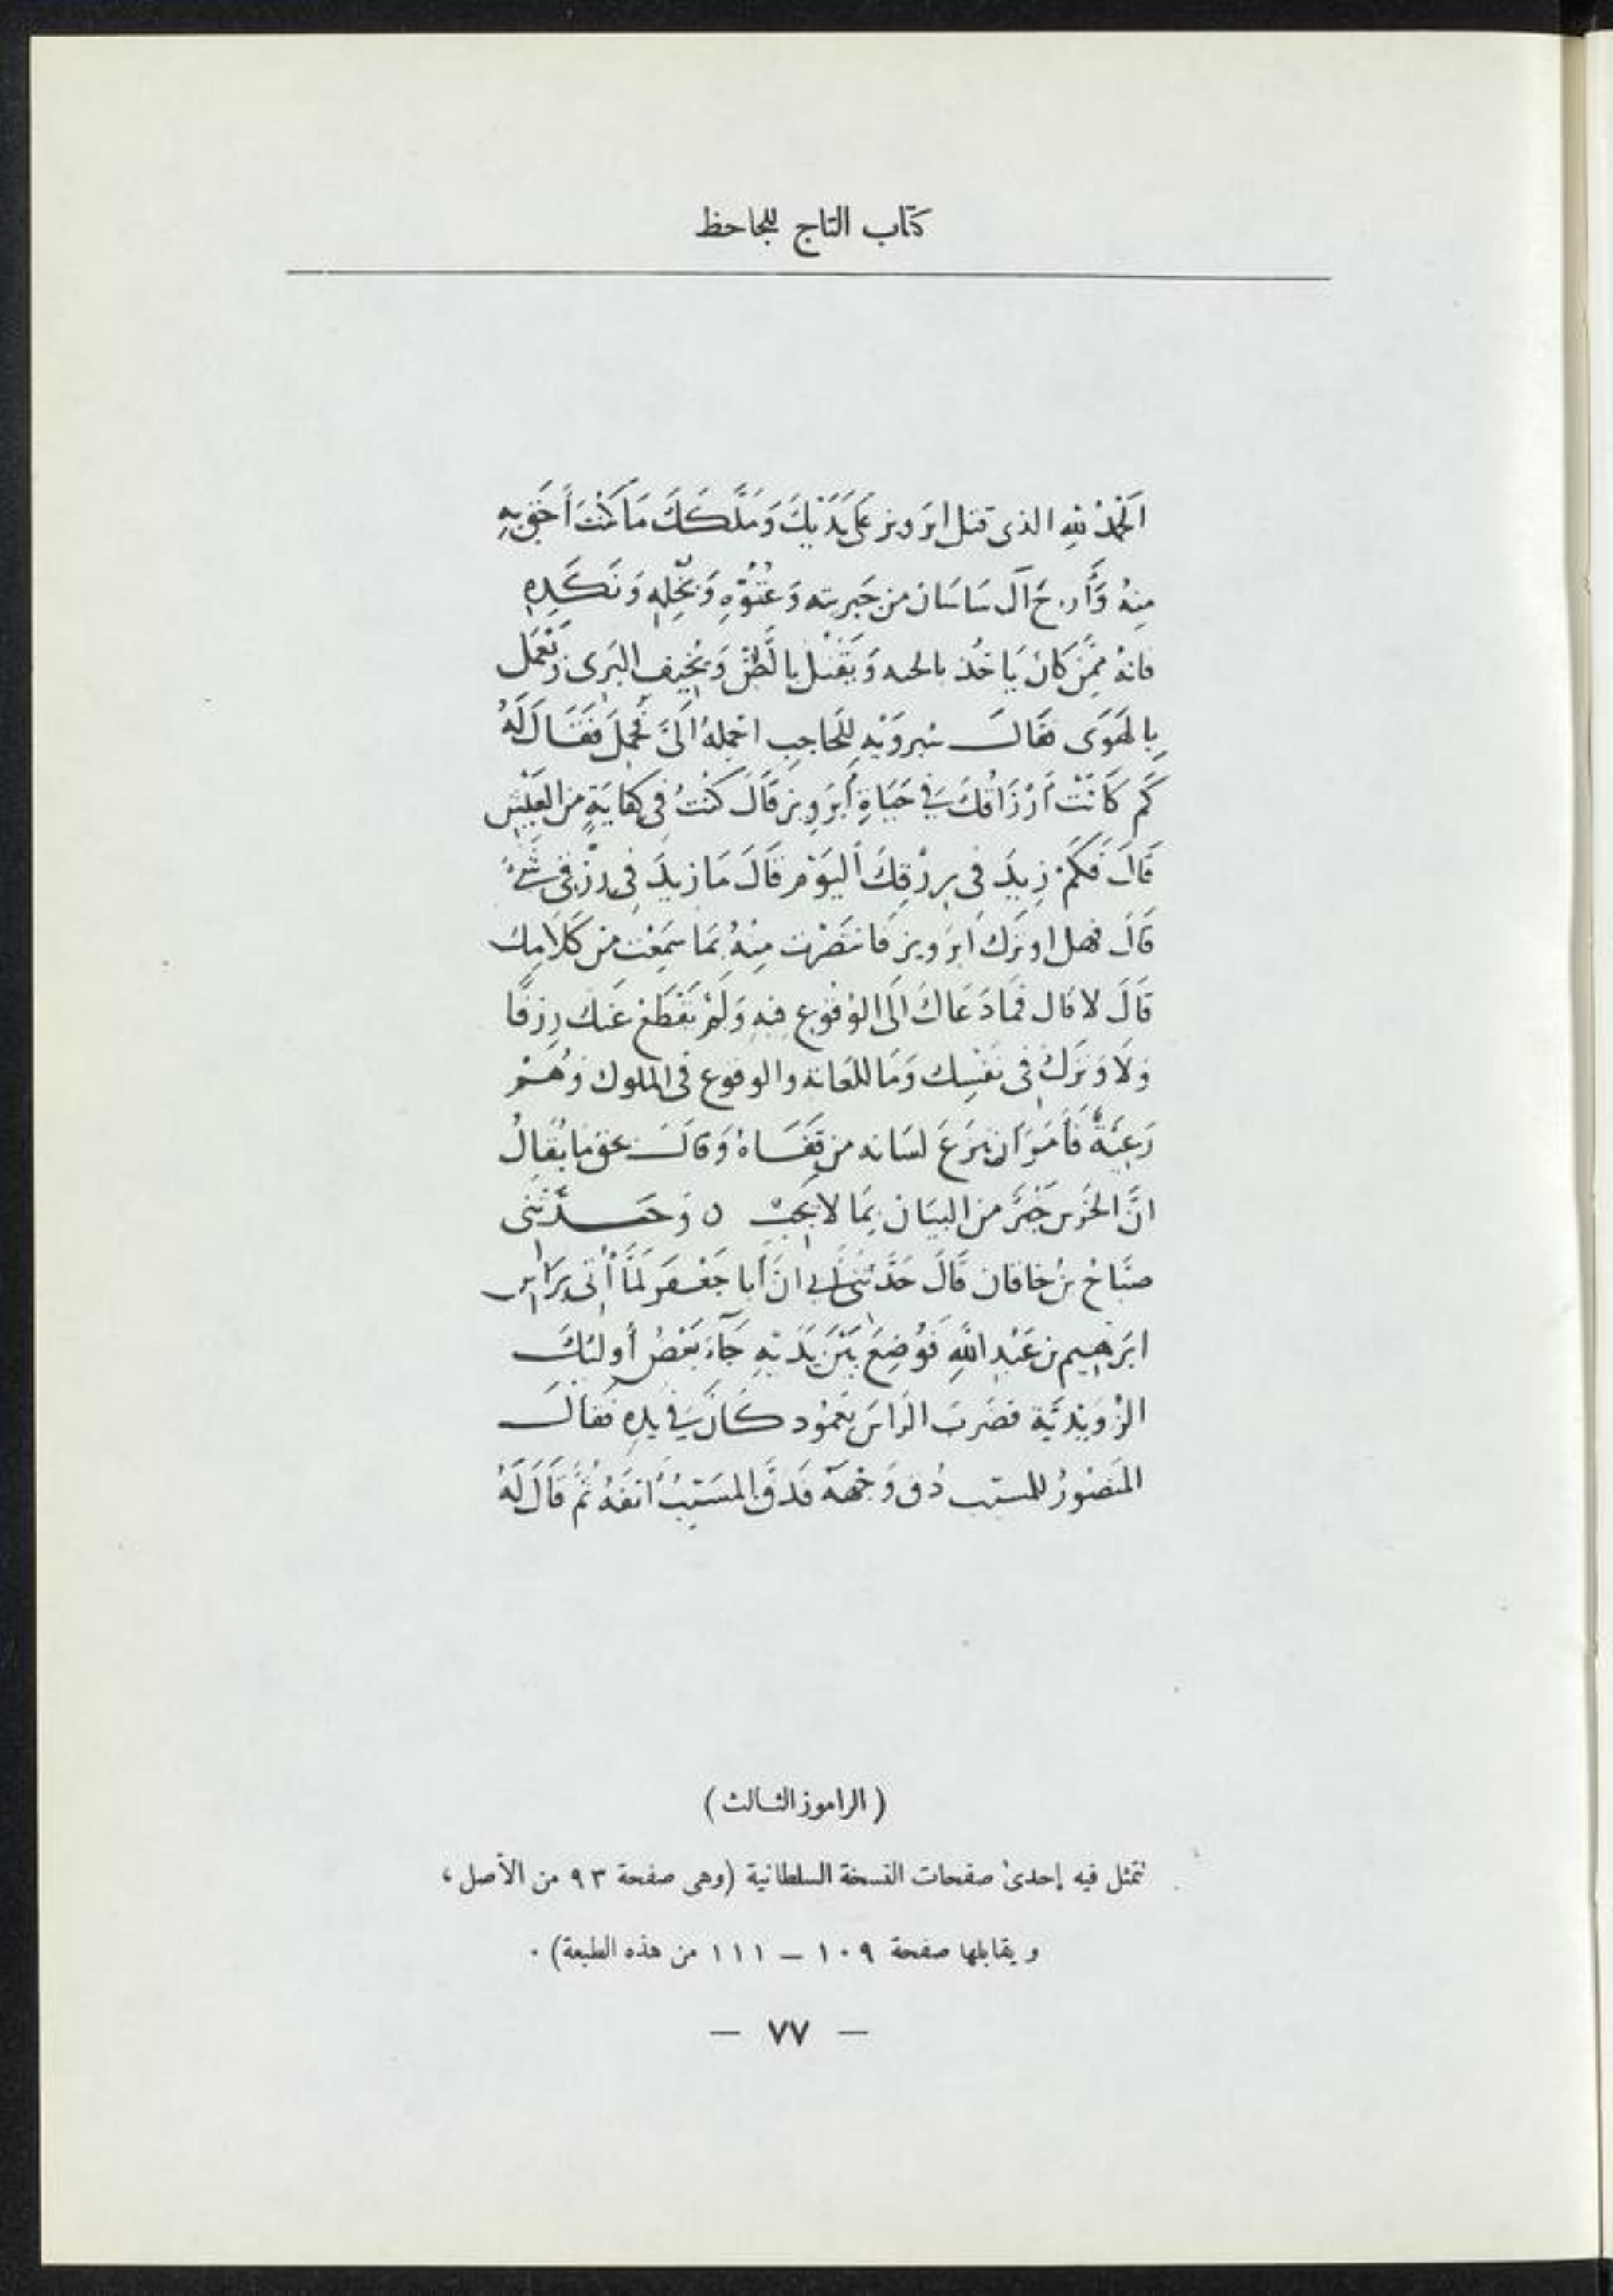 كتاب التاج للجاحظ
اَلْحَمْدُ لِلّهِ الذى قتل ابَرويز عَلَى يَدَيْكَ وَمَلَّكَكَ مَا كُنْتَ أَحَقَّ بِهِ
مِنْهُ وَأَراحَ آل سَاسَان من جَبَريته وَعُتُوِّهِ وَبُخْلِهِ وَنَكَدِهِ
فانهُ مِمَّنْ كَانَ يَاخُذ بالحنه وَيَقْتُل بِالظَّنِّ وَيُخِيف البَرِى وَيَعْمَل
بِالهَوَى فقَالَ شيرَوَيْهِ لِلْحَاجِبِ احْمِلهُ اِلَىَّ فَحُمِلَ فَقَالَ لَهُ
كَم كَانَتْ أَرْزَاقُكَ فِي حَيَاةِ أَبَرْوِيز قَالَ كُنْتُ فِى كِفَايَةٍ مِنَ العَيْشِ
قَالَ فَكَمْ زِيدَ فى رِزْقِكَ اليَوْمَ قَالَ مَا زِيدَ فِى رِزْقِى شَىْءٌ
قَالَ فهل اوترك ابَرويز فَانتَصَرْتَ مِنْهُ بِمَا سَمِعْتُ مِنْ كَلَامِكَ
قَالَ لا قال فَمَا دَعَاكَ اِلَى الوُقُوعِ فِيهِ وَلَمْ يَقْطَعْ عَنْكَ رِزْقًا
وَلَا وَتَرَكَ فى نَفْسِك وَمَا للعَامّة والوقوع فى الملوك وَهُمْ
رَعِيَّةٌ فَأَمَرَ ان يُنزَعَ لسَانه مِن قَفَاهُ وَقالَ بحق مَا يُقَالُ
انَّ الخَرَسَ خَيْرٌ مِنَ البيَان بِمَا لا يَجِبُ ٥ وَحَدَّثَنى
صَبَّاحُ بنُ خاقان قَالَ حَدَّثَنِى أَبِي انَّ أَبا جَعْفَر لَمَّا أُتِىَ بِرَاسِ
ابَرهِيم بن عَبْدِ اللّهِ فَوُضِعَ بَيْنَ يَدَيْهِ جَآءَ بَعْضُ أُولئِكَ
الرَّوَنْدِيَّة فضَرَبَ الرَّاسَ بِعَمُود كَانَ فِي يَدِهِ فَقَالَ
المَنْصُورُ للمسيّب دُقَّ وَجْهَهُ فَدَقَّ المسَيَّبُ انفَهُ ثُمَّ قَالَ لَهُ
(الراموز الثالث)
تتمثل فيه إحدى صفحات النسخة السلطانية (وهى صفحة ٩٣ من الأصل،
ويقابلها صفحة ١٠٩ — ١١١ من هذه الطبعة).
— ٧٧ —